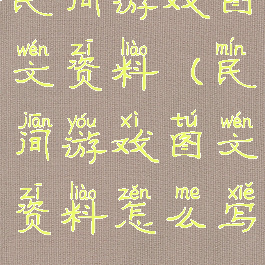 民间游戏图
wén zī liào mín
文资料（民
jiān yóu xì tú wén
间游戏图文
zī liào zěn me xiě
资料怎么写